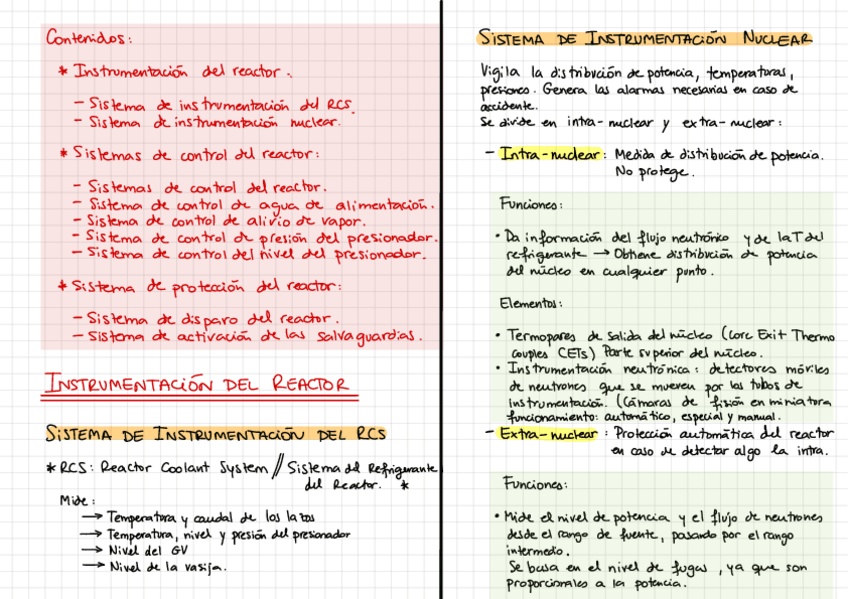 Contenidos:
* Instrumentación del reactor.
- Sistema de instrumentación del RCS.
- Sistema de instrumentación nuclear.
* Sistemas de control del reactor:
- Sistemas de control del reactor.
- Sistema de control de agua de alimentación.
- Sistema de control de alivio de vapor.
- Sistema de control de presión del presionador.
- Sistema de control del nivel del presionador.
* Sistema de protección del reactor:
- Sistema de disparo del reactor.
- Sistema de activación de las salvaguardias.
INSTRUMENTACIÓN DEL REACTOR
SISTEMA DE INSTRUMENTACIÓN DEL RCS
* RCS: Reactor Coolant System // Sistema del Refrigerante
del Reactor. *
Mide:
→ Temperatura y caudal de los lazos
→ Temperatura, nivel y presión del presionador
→ Nivel del GV
→ Nivel de la vasija.
SISTEMA DE INSTRUMENTACIÓN NUCLEAR
Vigila la distribución de potencia, temperaturas,
presiones. Genera las alarmas necesarias en caso de
accidente.
Se divide en intra-nuclear y extra-nuclear:
- Intra-nuclear: Medida de distribución de potencia.
No protege.
Funciones:
• Da información del flujo neutrónico y de la T del
refrigerante → Obtiene distribución de potencia
del núcleo en cualquier punto.
Elementos:
• Termopares de salida del núcleo (Core Exit Thermo
couples CETs) Parte superior del núcleo.
• Instrumentación neutrónica: detectores móviles
de neutrones que se mueven por los tubos de
instrumentación. (Cámaras de fisión en miniatora
funcionamiento: automático, especial y manual.
- Extra-nuclear: Protección automática del reactor
en caso de detectar algo la intra.
Funciones:
• Mide el nivel de potencia y el flujo de neutrones
desde el rango de fuente, pasando por el rango
intermedio.
Se basa en el nivel de fugas, ya que son
proporcionales a la potencia.